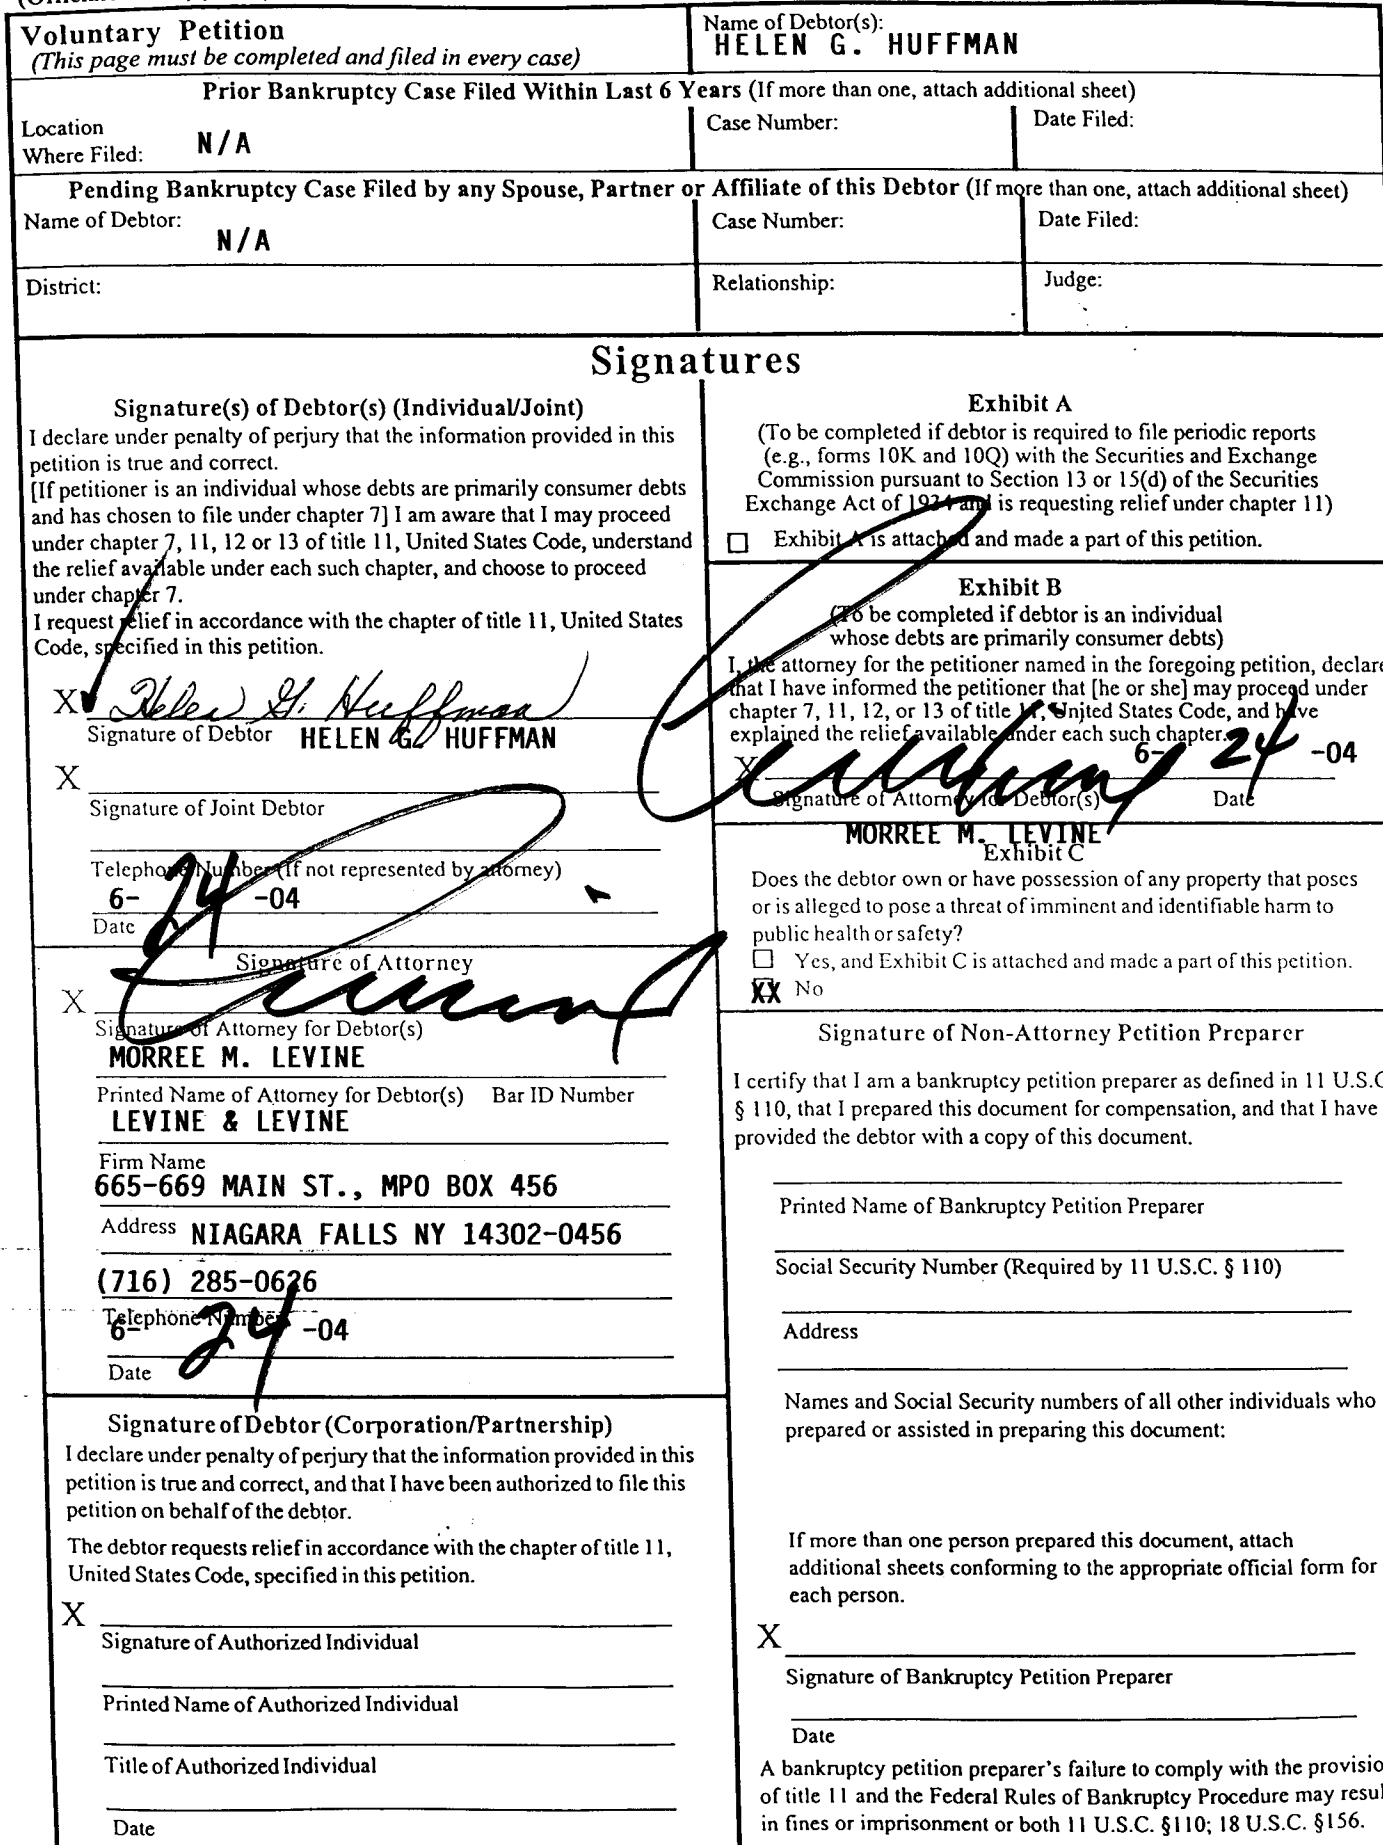 Voluntary Petition
(This page must be completed and filed in every case)
Name of Debtor(s):
HELEN G. HUFFMAN
Prior Bankruptcy Case Filed Within Last 6 Years (If more than one, attach additional sheet)
Location
Where Filed: N/A
Case Number:
Date Filed:
Pending Bankruptcy Case Filed by any Spouse, Partner or Affiliate of this Debtor (If more than one, attach additional sheet)
Name of Debtor:
N/A
Case Number:
Date Filed:
District:
Relationship:
Judge:
Signatures
Signature(s) of Debtor(s) (Individual/Joint)
I declare under penalty of perjury that the information provided in this
petition is true and correct.
[If petitioner is an individual whose debts are primarily consumer debts
and has chosen to file under chapter 7] I am aware that I may proceed
under chapter 7, 11, 12 or 13 of title 11, United States Code, understand
the relief available under each such chapter, and choose to proceed
under chapter 7.
I request relief in accordance with the chapter of title 11, United States
Code, specified in this petition.
X Helen G. Huffman
Signature of Debtor HELEN G. HUFFMAN
X
Signature of Joint Debtor
Telephone Number (If not represented by attorney)
6- 24 -04
Date
Signature of Attorney
X
Signature of Attorney for Debtor(s)
MORREE M. LEVINE
Printed Name of Attorney for Debtor(s) Bar ID Number
LEVINE & LEVINE
Firm Name
665-669 MAIN ST., MPO BOX 456
Address NIAGARA FALLS NY 14302-0456
(716) 285-0626
Telephone Number
6- 24 -04
Date
Signature of Debtor (Corporation/Partnership)
I declare under penalty of perjury that the information provided in this
petition is true and correct, and that I have been authorized to file this
petition on behalf of the debtor.
The debtor requests relief in accordance with the chapter of title 11,
United States Code, specified in this petition.
X
Signature of Authorized Individual
Printed Name of Authorized Individual
Title of Authorized Individual
Date
Exhibit A
(To be completed if debtor is required to file periodic reports
(e.g., forms 10K and 10Q) with the Securities and Exchange
Commission pursuant to Section 13 or 15(d) of the Securities
Exchange Act of 1934 and is requesting relief under chapter 11)
☐ Exhibit A is attached and made a part of this petition.
Exhibit B
(To be completed if debtor is an individual
whose debts are primarily consumer debts)
I, the attorney for the petitioner named in the foregoing petition, declare
that I have informed the petitioner that [he or she] may proceed under
chapter 7, 11, 12, or 13 of title 11, United States Code, and have
explained the relief available under each such chapter.
X 6- 24 -04
Signature of Attorney for Debtor(s) Date
MORREE M. LEVINE
Exhibit C
Does the debtor own or have possession of any property that poses
or is alleged to pose a threat of imminent and identifiable harm to
public health or safety?
☐ Yes, and Exhibit C is attached and made a part of this petition.
XX No
Signature of Non-Attorney Petition Preparer
I certify that I am a bankruptcy petition preparer as defined in 11 U.S.C
§ 110, that I prepared this document for compensation, and that I have
provided the debtor with a copy of this document.
Printed Name of Bankruptcy Petition Preparer
Social Security Number (Required by 11 U.S.C. § 110)
Address
Names and Social Security numbers of all other individuals who
prepared or assisted in preparing this document:
If more than one person prepared this document, attach
additional sheets conforming to the appropriate official form for
each person.
X
Signature of Bankruptcy Petition Preparer
Date
A bankruptcy petition preparer's failure to comply with the provisio
of title 11 and the Federal Rules of Bankruptcy Procedure may resul
in fines or imprisonment or both 11 U.S.C. §110; 18 U.S.C. §156.